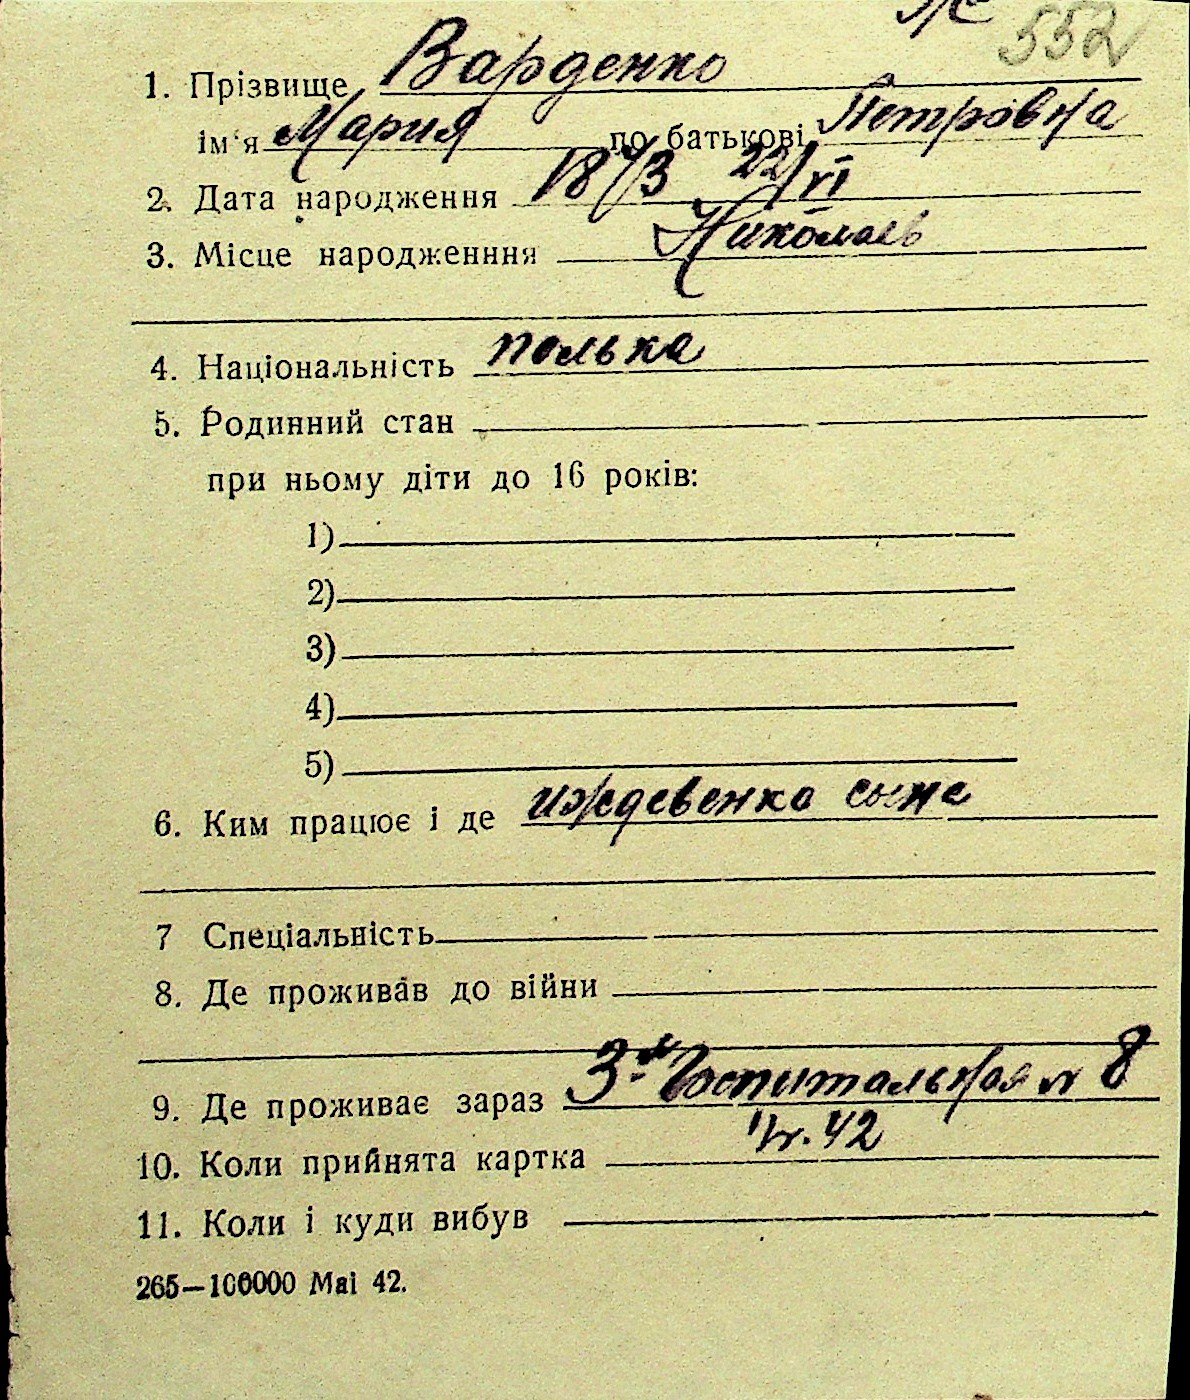 Ж 552
1. Прізвище Варденко
ім'я Мария по батькові Петровна
2. Дата народження 1873 22/VI
3. Місце народженння Николаев
4. Національність полька
5. Родинний стан
при ньому діти до 16 років:
1)
2)
3)
4)
5)
6. Ким працює і де иждевенка сына
7 Спеціальність
8. Де проживав до війни
9. Де проживає зараз 3-я Госпитальная № 8
10. Коли прийнята картка 42
11. Коли і куди вибув
265—100000 Mai 42.